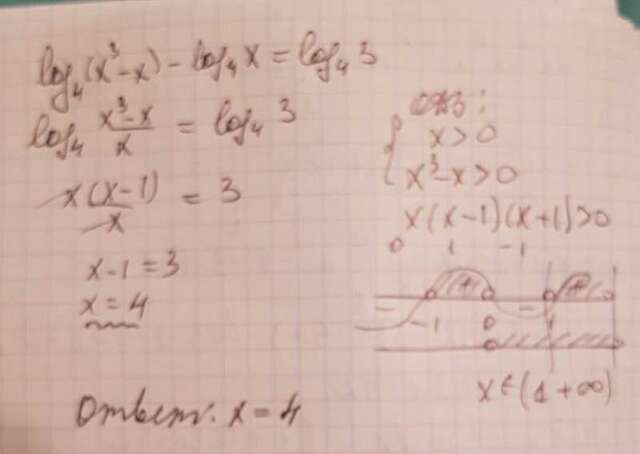 log₄(x³-x) - log₄x = log₄3
log₄ (x³-x)/x = log₄3
x(x-1)/x = 3
x-1 = 3
x = 4
Ответ: x = 4
ОДЗ:
{ x>0
x³-x>0
x(x-1)(x+1)>0
0 1 -1
- + - +
-1 0 1
x∈(1 +∞)